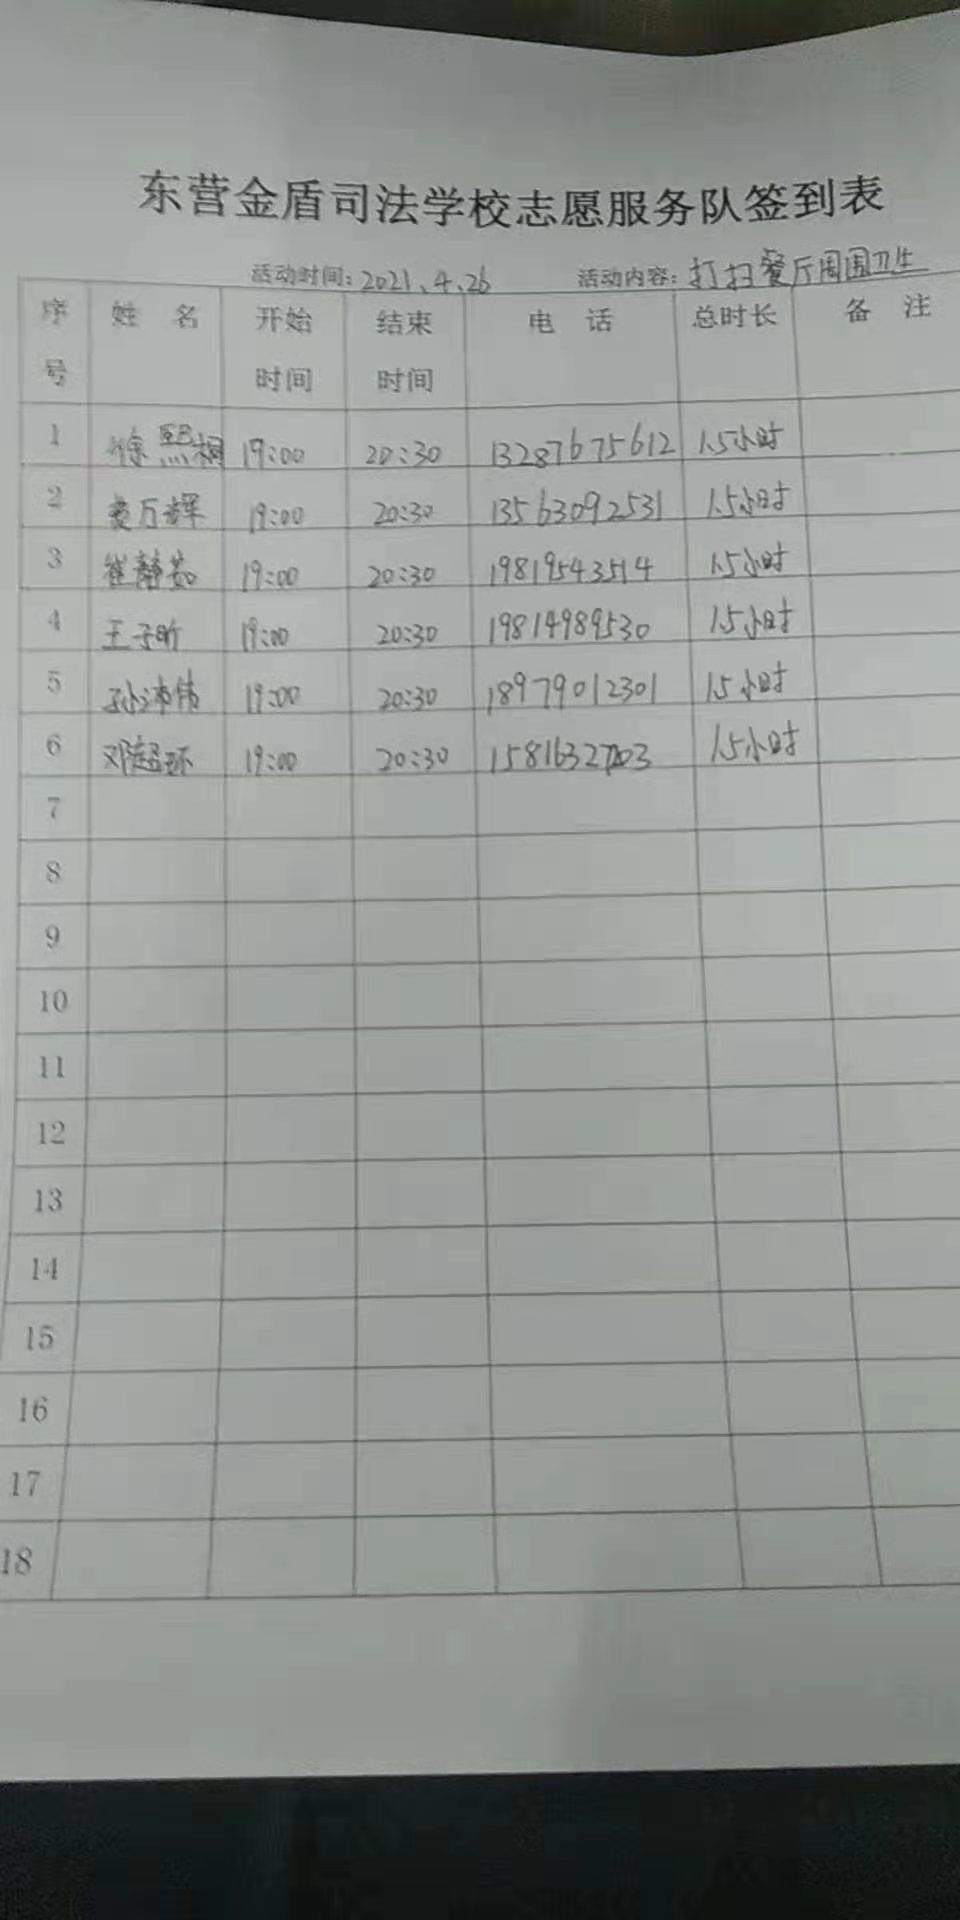 东营金盾司法学校志愿服务队签到表
活动时间：2021、4、26 活动内容：打扫餐厅周围卫生
序号 姓 名 开始时间 结束时间 电 话 总时长 备 注
1 徐熙桐 19:00 20:30 13287675612 1.5小时
2 万辉 19:00 20:30 13563092531 1.5小时
3 崔静茹 19:00 20:30 19819543514 1.5小时
4 王子昕 19:00 20:30 19814989530 1.5小时
5 孙沛伟 19:00 20:30 18979012301 1.5小时
6 邓超环 19:00 20:30 1.5小时
7
8
9
10
11
12
13
14
15
16
17
18